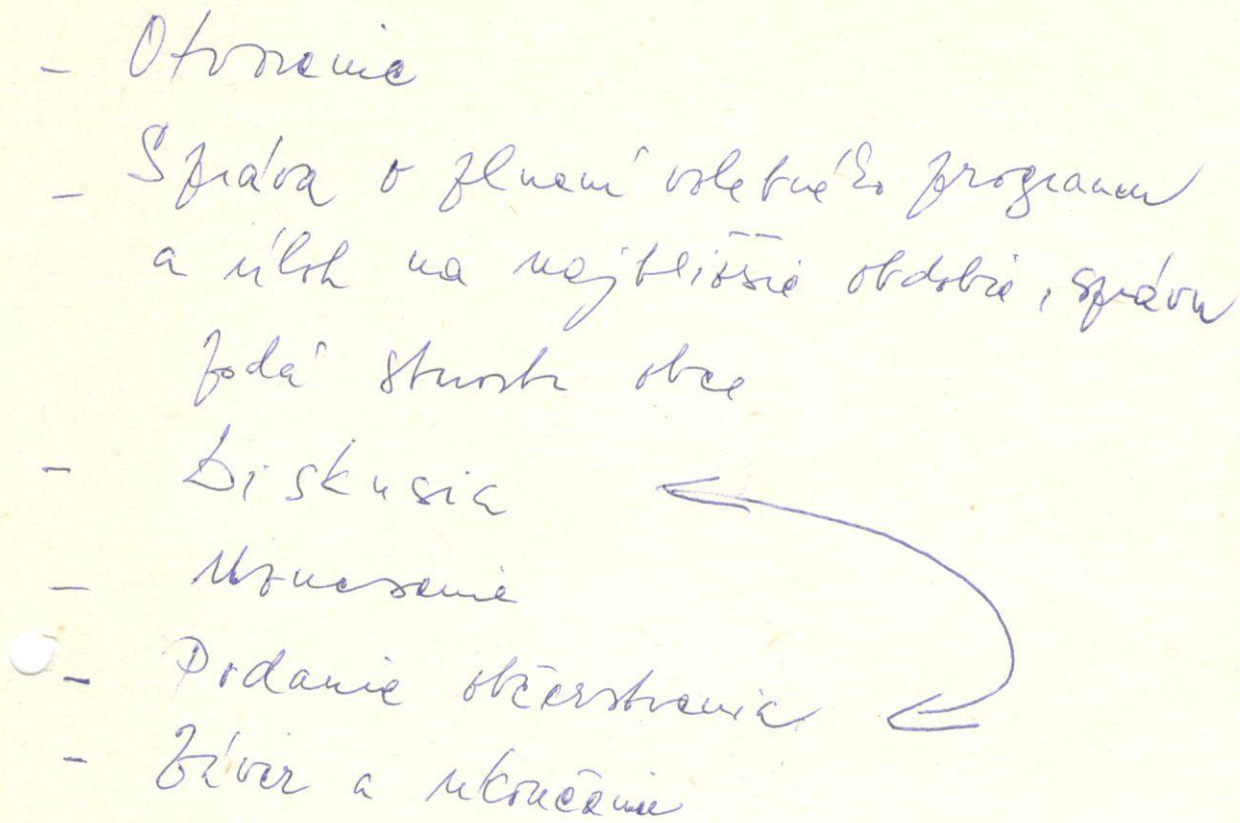 - Otvorenie
- Správa o plnení volebného programu
a úloh na najbližšie obdobie, správu
podá starosta obce
- Diskusia
- Uznesenie
- Podanie občerstvenia
- Záver a ukončenie